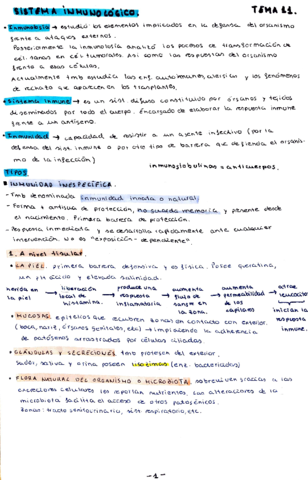 SISTEMA INMUNOLÓGICO. TEMA 11.
• Inmunología → estudia los elementos implicados en la defensa del organismo
frente a ataques externos.
Posteriormente la inmunología analizó los procesos de transformación de
cél. sanas en cél. tumorales. Así como las respuestas del organismo
frente a esas células.
Actualmente tmb estudia las enf. autoinmunes, alergias y los fenómenos
de rechazo que aparecen en los trasplantes.
• Sistema inmune → es un sist. difuso constituido por órganos y tejidos
diseminados por todo el cuerpo. Encargado de elaborar la respuesta inmune
frente a un antígeno.
• Inmunidad → capacidad de resistir a un agente infectivo (por la
defensa del sist. inmune o por otro tipo de barrera que defienda el organis-
mo de la infección)
inmunoglobulinas = anticuerpos.
TIPOS
INMUNIDAD INESPECÍFICA.
- Tmb denominada inmunidad innata o natural
- Forma + antigua de protección, no guarda memoria, y presente desde
el nacimiento. Primera barrera de protección.
- Respuesta inmediata y se desarrolla rápidamente ante cualquier
intervención. No es "exposición-dependiente"
1. A nivel tisular.
• LA PIEL: primera barrera defensiva y es física. Posee queratina,
un pH ácido y elevada salinidad.
herida en la piel → liberación local de histamina → produce una respuesta inflamatoria → aumenta flujo de sangre en la zona → aumenta permeabilidad de los capilares → atrae leucocitos inician la respuesta inmune.
• MUCOSAS: epitelios que recubren zonas en contacto con exterior.
(boca, nariz, órganos genitales, etc) → impidiendo la adherencia
de patógenos arrastrados por células ciliadas.
• GLÁNDULAS Y SECRECIONES: tmb protegen del exterior.
Sudor, saliva y orina poseen lisozimas (enz. bactericidas)
• FLORA NATURAL DEL ORGANISMO O MICROBIOTA: sobreviven gracias a las
excreciones celulares les reportan nutrientes. Con alteraciones de la
microbiota facilita el acceso de otros patogénicos.
Zonas: tracto genitourinario, sist. respiratorio, etc.
- 1 -